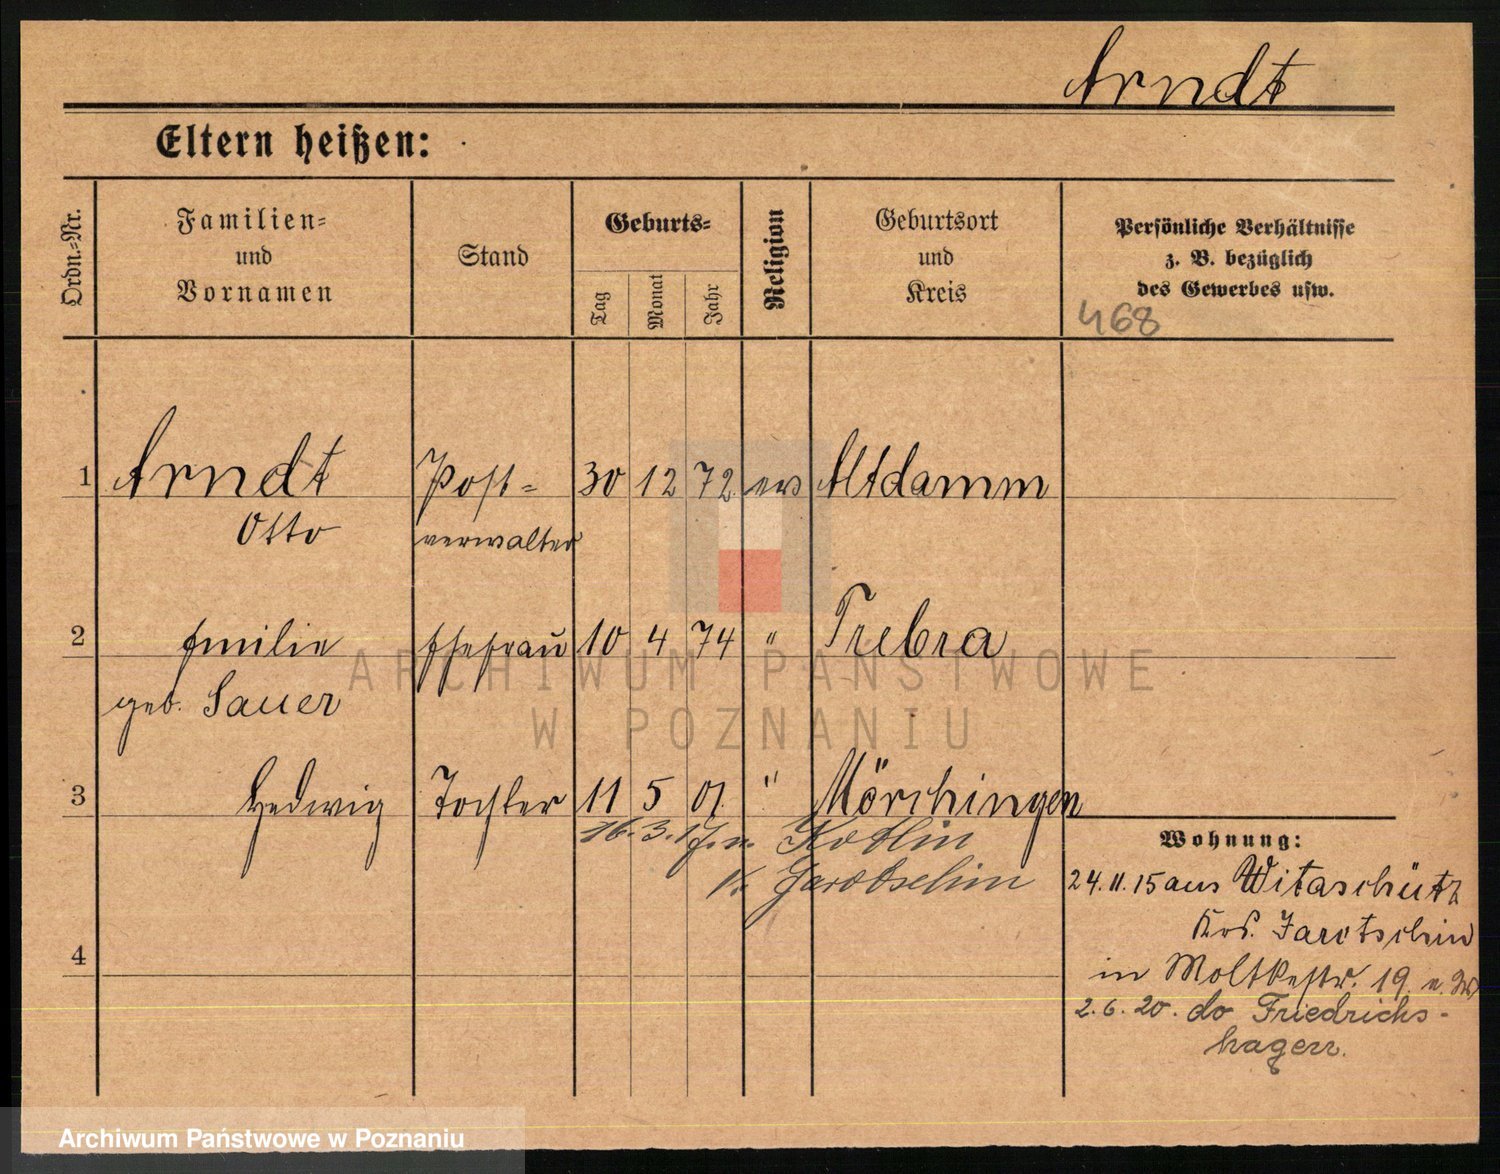 Arndt
Eltern heißen:
Ordn.-Nr.
Familien-
und
Vornamen
Stand
Geburts-
Tag
Monat
Jahr
Religion
Geburtsort
und
Kreis
Persönliche Verhältnisse
z. B. bezüglich
des Gewerbes usw.
468
1 Arndt Post- 30 12 72 ev Altdamm
Otto verwalter
2 Emilie Ehefrau 10 4 74 " Trebra
geb. Sauer
3 Hedwig Tochter 11 5 01 " Mörchingen
16. 3. 17. n. Kotlin
Kr. Jarotschin
Wohnung:
24.11.15 aus Witaschütz
Krs. Jarotschin
in Moltkestr. 19
4
2.6.20. do Friedrichs-
hagen.
ARCHIWUM PAŃSTWOWE
W POZNANIU
Archiwum Państwowe w Poznaniu